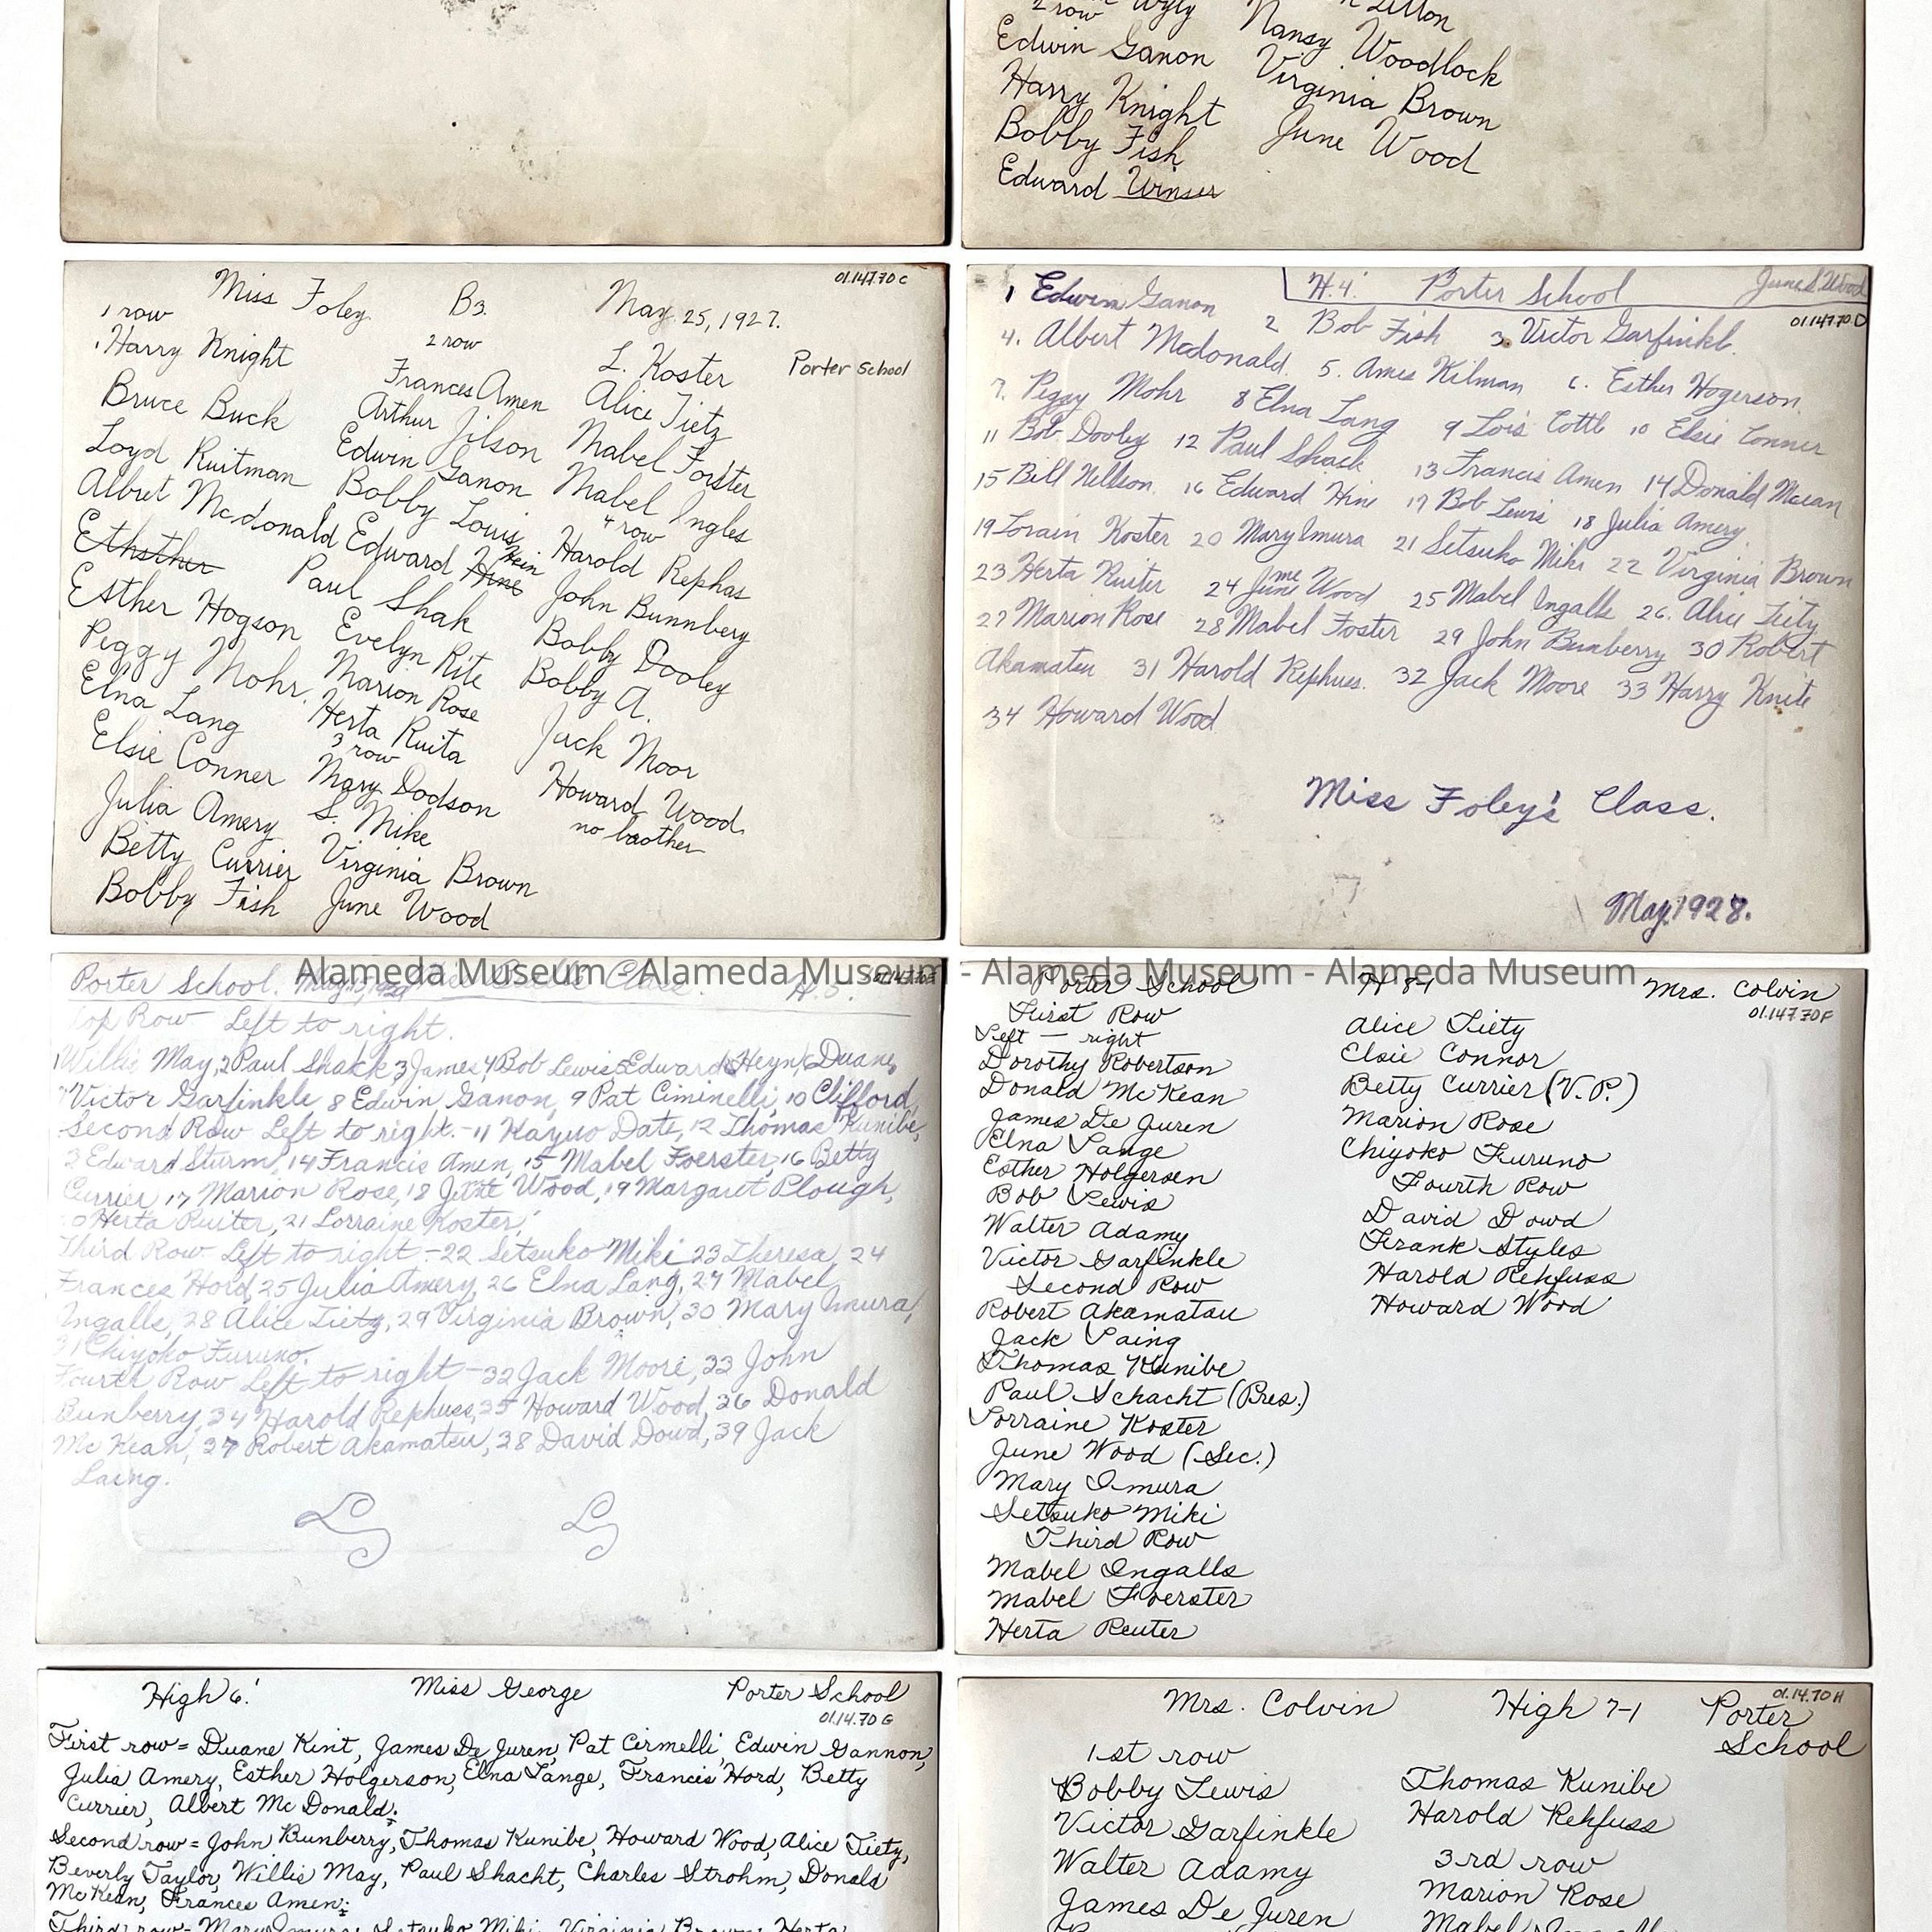 2 row Wyly
Edwin Ganon
Harry Knight
Bobby Fish
Edward
Nansy Woodlock
Virginia Brown
June Wood
01.147.70 C
Miss Foley B3. May 25, 1927.
Porter School
1 row
Harry Knight
Bruce Buck
Loyd Ruitman
Albret Mcdonald
Ethsther
Esther Hogson
Peggy Mohr
Elna Lang
Elsie Conner
Julia Amery
Betty Currier
Bobby Fish
2 row
Frances Amen
Arthur Jilson
Edwin Ganon
Bobby Louis
Edward Hine Hein
Paul Shak
Evelyn Rite
Marion Rose
Herta Ruita
3 row
Mary Dodson
S. Mike
Virginia Brown
June Wood
L. Koster
Alice Tietz
Mabel Forster
Mabel Ingles
4 row
Harold Rephas
John Bunnbery
Bobby Dooley
Bobby A.
Jack Moor
Howard Wood
no brother
H.4. Porter School June S. Wood
01.147.70.D
1 Edwin Ganon 2 Bob Fish 3. Victor Garfinkl.
4. Albert Mcdonald. 5. Ames Kilman 6. Esther Hogerson.
7. Peggy Mohr 8 Elna Lang 9 Lois Cottle 10 Elsie Conner
11 Bob Dooley 12 Paul Shack 13 Francis Amen 14 Donald Mcean
15 Bill Nellson. 16 Edward Hine 17 Bob Lewis 18 Julia Amery.
19 Lorain Koster 20 Mary Imura 21 Setsuko Miki 22 Virginia Brown
23 Herta Ruiter 24 June Wood 25 Mabel Ingalls 26. Alice Tiety
27 Marion Rose 28 Mabel Foster 29 John Bunberry 30 Robert
Akamatsu 31 Harold Rephuss. 32 Jack Moore 33 Harry Knite
34 Howard Wood
Miss Foley's Class.
May, 1928.
Alameda Museum - Alameda Museum - Alameda Museum - Alameda Museum
Porter School. Class. H.5.
Top Row Left to right.
1 Willis May, 2 Paul Shack, 3 James, 4 Bob Lewis, 5 Edward Heyn, 6 Duane,
7 Victor Garfinkle, 8 Edwin Ganon, 9 Pat Ciminelli, 10 Clifford,
Second Row Left to right.- 11 Kazuo Date, 12 Thomas Kunibe,
3 Edward Sturm, 14 Francis Amen, 15 Mabel Foerster, 16 Betty
Currier, 17 Marion Rose, 18 June Wood, 19 Margaret Plough,
20 Herta Ruiter, 21 Lorraine Koster,
Third Row Left to right - 22 Setsuko Miki 23 Theresa, 24
Frances Hord, 25 Julia Amery, 26 Elna Lang, 27 Mabel
Ingalls, 28 Alice Tietz, 29 Virginia Brown, 30 Mary Imura,
31 Chiyoko Furuno.
Fourth Row Left to right - 32 Jack Moore, 33 John
Bunberry, 34 Harold Rephuss, 35 Howard Wood, 36 Donald
Mc Kean, 37 Robert Akamatsu, 38 David Dowd, 39 Jack
Laing.
Porter School H 8-1 Mrs. Colvin
01.147.70F
First Row
Left — right
Dorothy Robertson
Donald McKean
James De Juren
Elna Lange
Esther Holgersen
Bob Lewis
Walter Adamy
Victor Garfinkle
Second Row
Robert Akamatsu
Jack Laing
Thomas Kunibe
Paul Schacht (Pres.)
Lorraine Koster
June Wood (Sec.)
Mary Imura
Setsuko Miki
Third Row
Mabel Ingalls
Mabel Foerster
Herta Reuter
Alice Tiety
Elsie Connor
Betty Currier (V.P.)
Marion Rose
Chiyoko Furuno
Fourth Row
David Dowd
Frank Styles
Harold Rehfuss
Howard Wood
High 6. Miss George Porter School
01.14.70 G
First row = Duane Kint, James De Juren, Pat Cirmelli, Edwin Gannon,
Julia Amery, Esther Holgerson, Elna Lange, Francis Hord, Betty
Currier, Albert Mc Donald.
Second row = John Bunberry, Thomas Kunibe, Howard Wood, Alice Tiety,
Beverly Taylor, Willis May, Paul Shacht, Charles Strohm, Donald
McKean, Frances Amen.
Third row - Mary Imura, Setsuko Miki, Virginia Brown, Herta
01.14.70 H
Mrs. Colvin High 7-1 Porter
School
1st row
Bobby Lewis
Victor Garfinkle
Walter Adamy
James De Juren
Thomas Kunibe
Harold Rehfuss
3rd row
Marion Rose
Mabel Ingalls